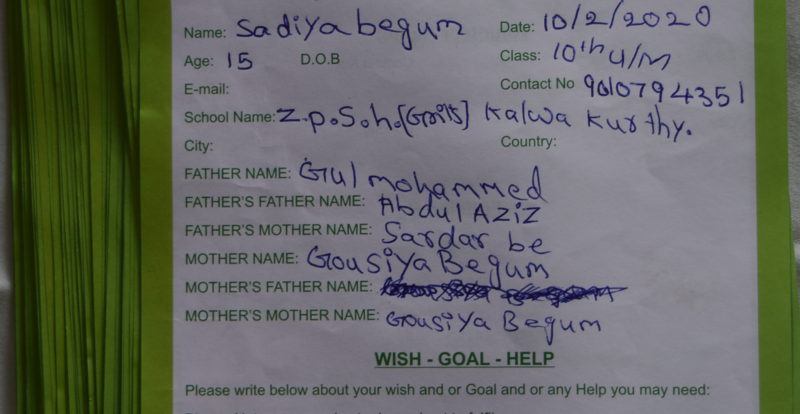 Name: Sadiya begum Date: 10/2/2020
Age: 15 D.O.B Class: 10th U/M
E-mail: Contact No 9010794351
School Name: Z.p.S.h.[Grils] Kalwa Kurthy.
City: Country:
FATHER NAME: Gul mohammed
FATHER'S FATHER NAME: Abdul AZiZ
FATHER'S MOTHER NAME: Sardar be
MOTHER NAME: GousiYa Begum
MOTHER'S FATHER NAME:
MOTHER'S MOTHER NAME: GousiYa Begum
WISH - GOAL - HELP
Please write below about your wish and or Goal and or any Help you may need: